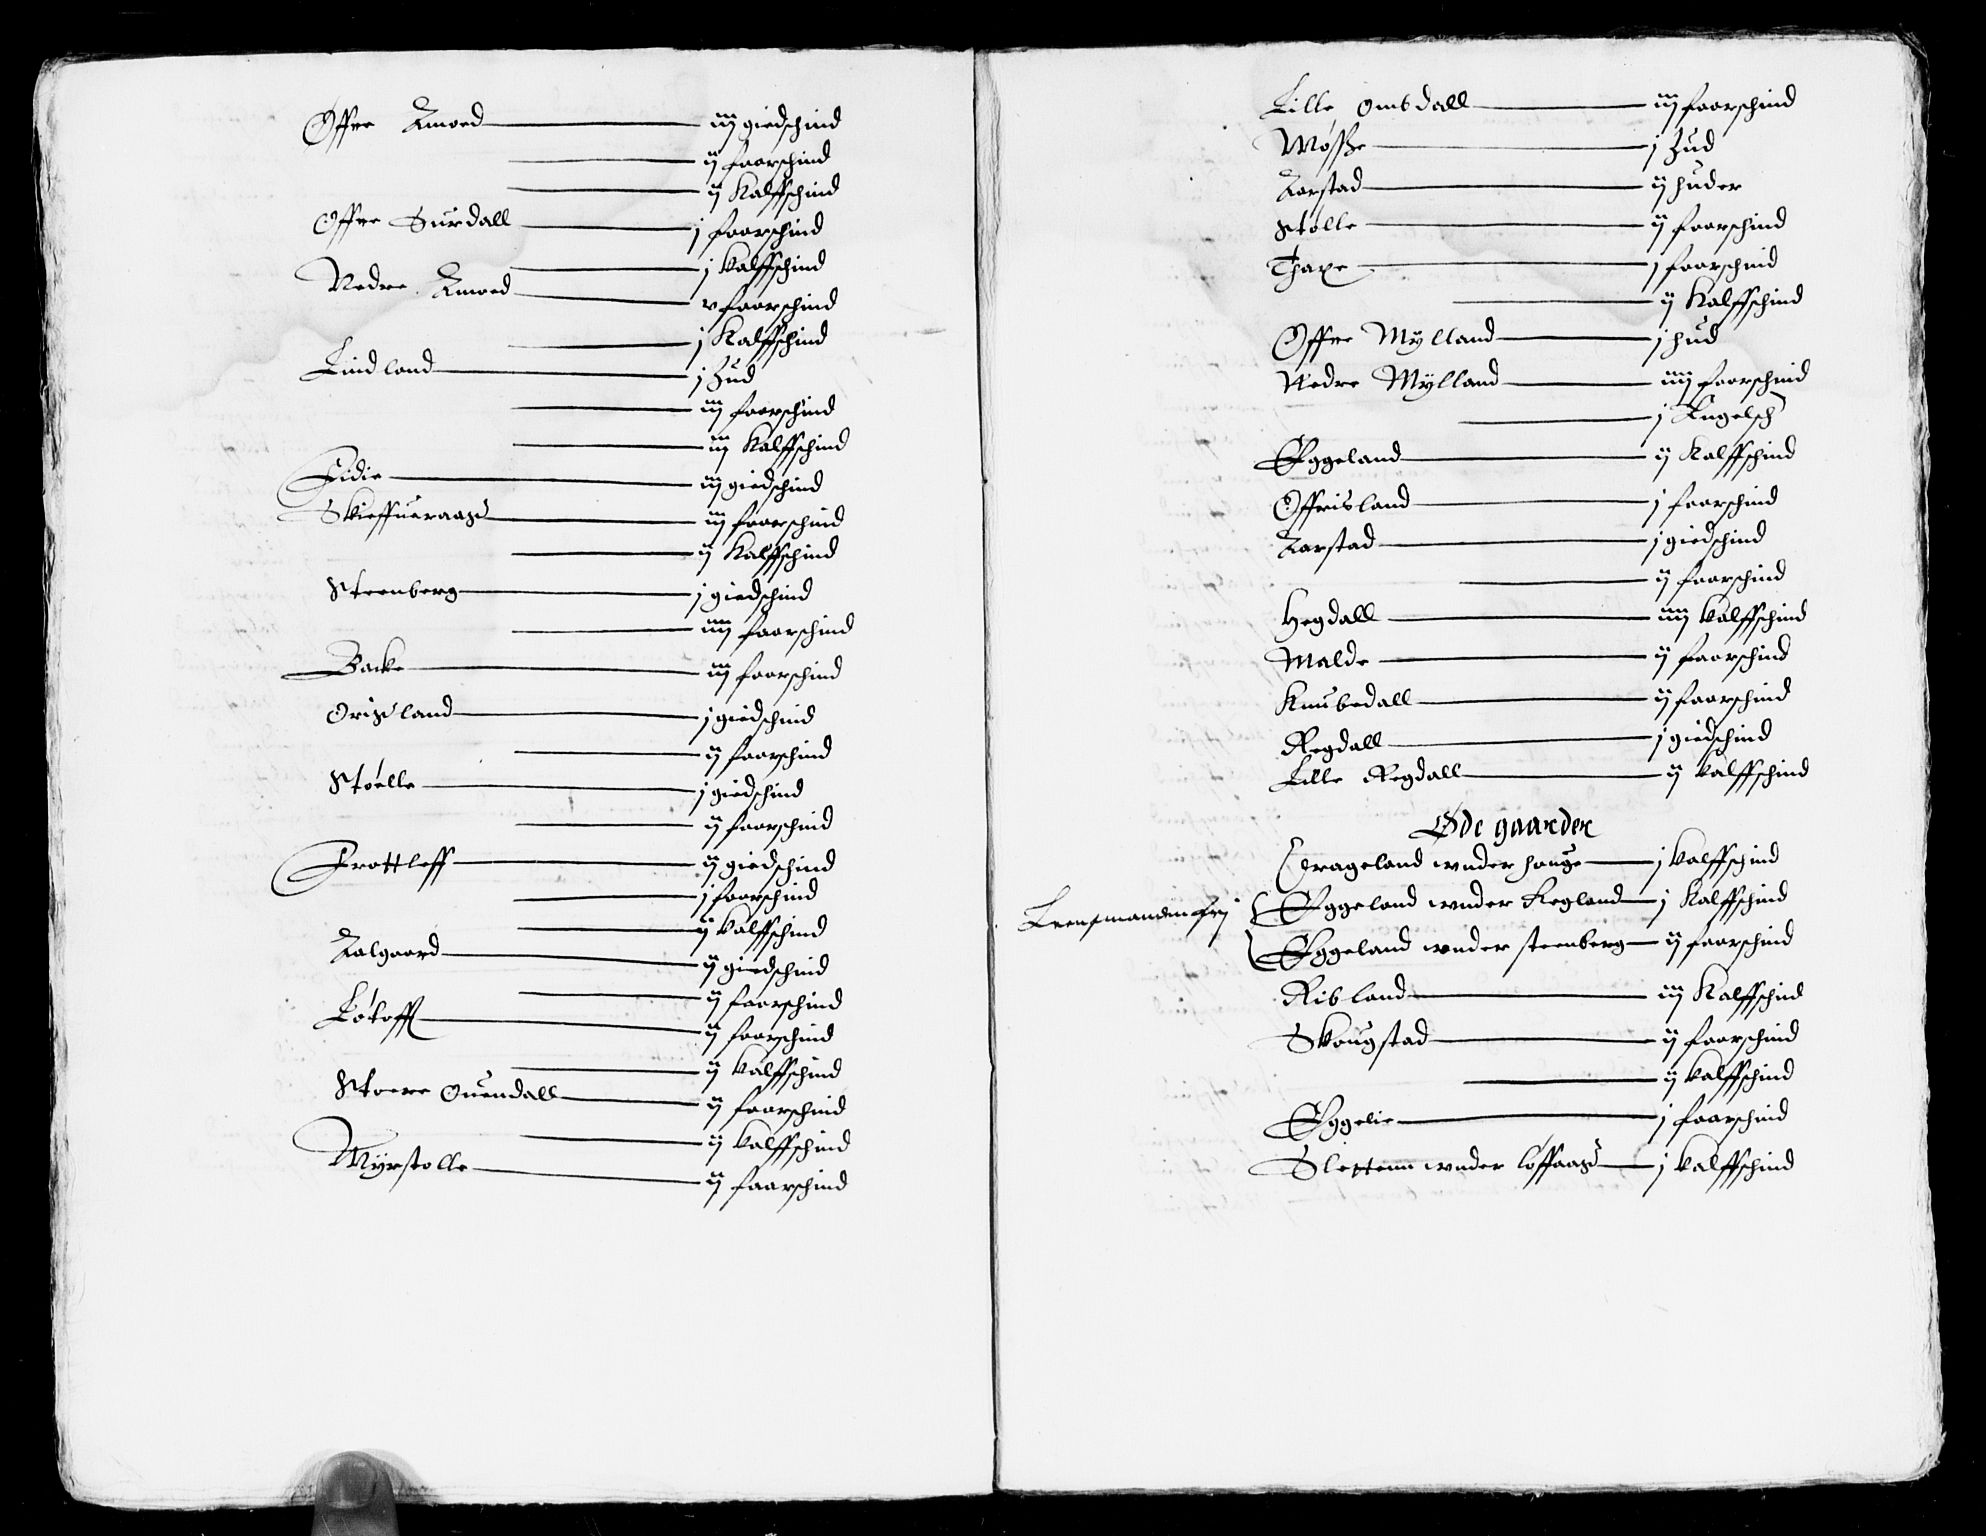 Offre Amoed iij giedschind
ij faarschind
ij Kalffschind
Offre Surdall j faarschind
j kalffschind
Nedre Amoed v faarschind
j Kalffschind
Lindland j Hud
iij faarschind
iij Kalffschind
Fidie iij giedschind
Skieffueraas iij faarschind
ij Kalffschind
Steenberg j giedschind
iiij faarschind
Backe iij faarschind
Orisland j giedschind
ij faarschind
Stølle j giedschind
ij faarschind
Frottleff ij giedschind
j faarschind
ij kalffschind
Aalgaard ij giedschind
ij faarschind
Løkoff ij faarschind
ij kalffschind
Stoere Ouendall ij faarschind
ij kalffschind
Myrstolle ij faarschind
Lille Omsdall iij faarschind
Møsse j Hud
Aarstad ij huder
Stølle ij faarschind
Thaxe j faarschind
ij Kalffschind
Offre Mylland j hud
Nedre Mylland iiij faarschind
j Engelsch
Eggeland ij Kalffschind
Offrisland j faarschind
Aarstad j giedschind
ij faarschind
Hegdall iiij kalffschind
Malde ij faarschind
Knubedall ij faarschind
Regdall j giedschind
Lille Regdall ij kalffschind
Øde gaarder
Drageland wnder houge j kalffschind
Leensmanden frj Eggeland wnder Regland j Kalffschind
Eggeland wnder steenberg ij faarschind
Risland iij Kalffschind
Skougstad ij faarschind
ij kalffschind
Eggelie j faarschind
Slettenn wnder løffaas j kalffschind